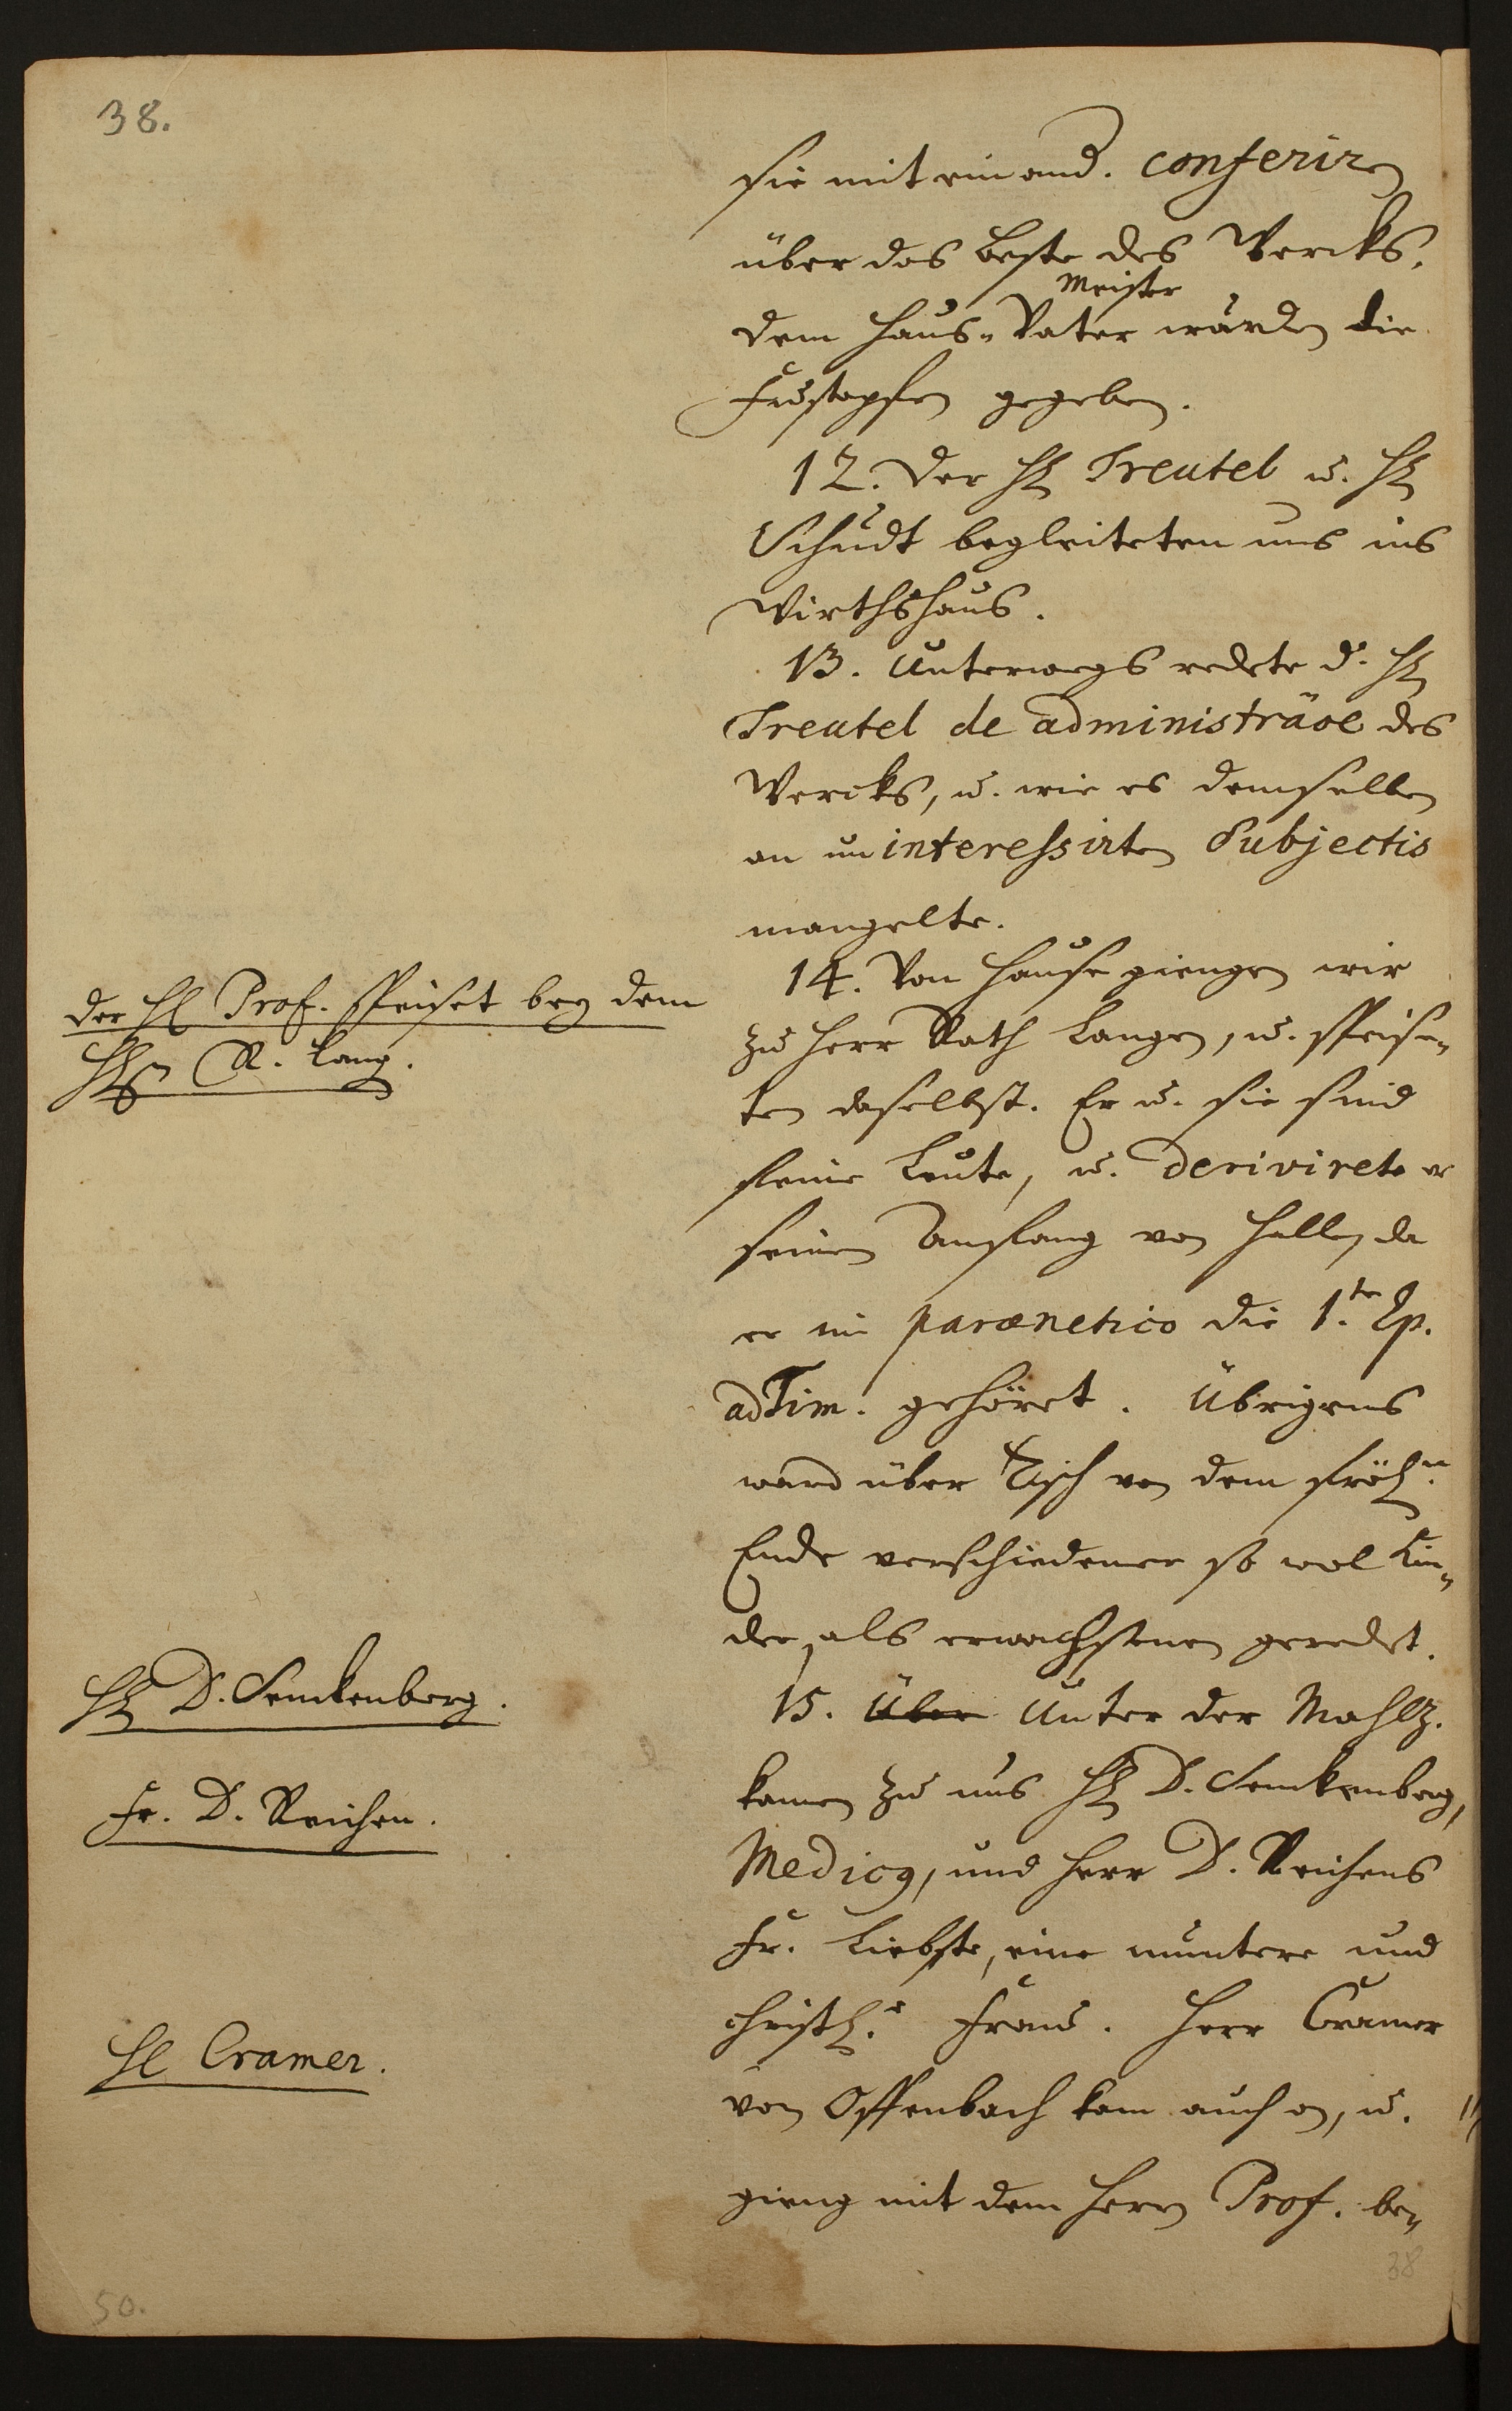 38.
sie mit einand. conferiren
über das beste des Wercks.
Meister
dem Haus-Vater wurden die
Fusstapfen gegeben.
12. Der H. Treutel u. H.
Schudt begleiteten uns ins
Wirthshaus.
13. Unterwegs redete d. H.
Treutel de administraõe des
Wercks, u. wie es demselben
an uninteressirten Subjectis
mangelte.
der H Prof. speiset bey dem
H. R. Lang.
14. Von Hause giengen wir
zu Herr Rath Langen, u. speise-
ten daselbst. Er u. sie sind
feine Leute, u. derivirete er
seinen Anfang von Halle, da
er im parænetico die 1.te Ep.
ad Tim. gehöret. Übrigens
ward über Tisch von dem fröhl.n
Ende verschiedener so wol Kin-
der, als erwachsenen geredet.
H. D. Senckenberg.
15. Über Unter der Mahlz.
Fr. D. Reichen.
kamen zu uns H. D. Senckenberg,
Medicg, und Herr D. Reichens
Fr. Liebste, eine muntere und
christl.e Frau. Herr Cramer
H Cramer.
von Offenbach kam auch an, u.
gieng mit dem Herrn Prof. be-
38
50.